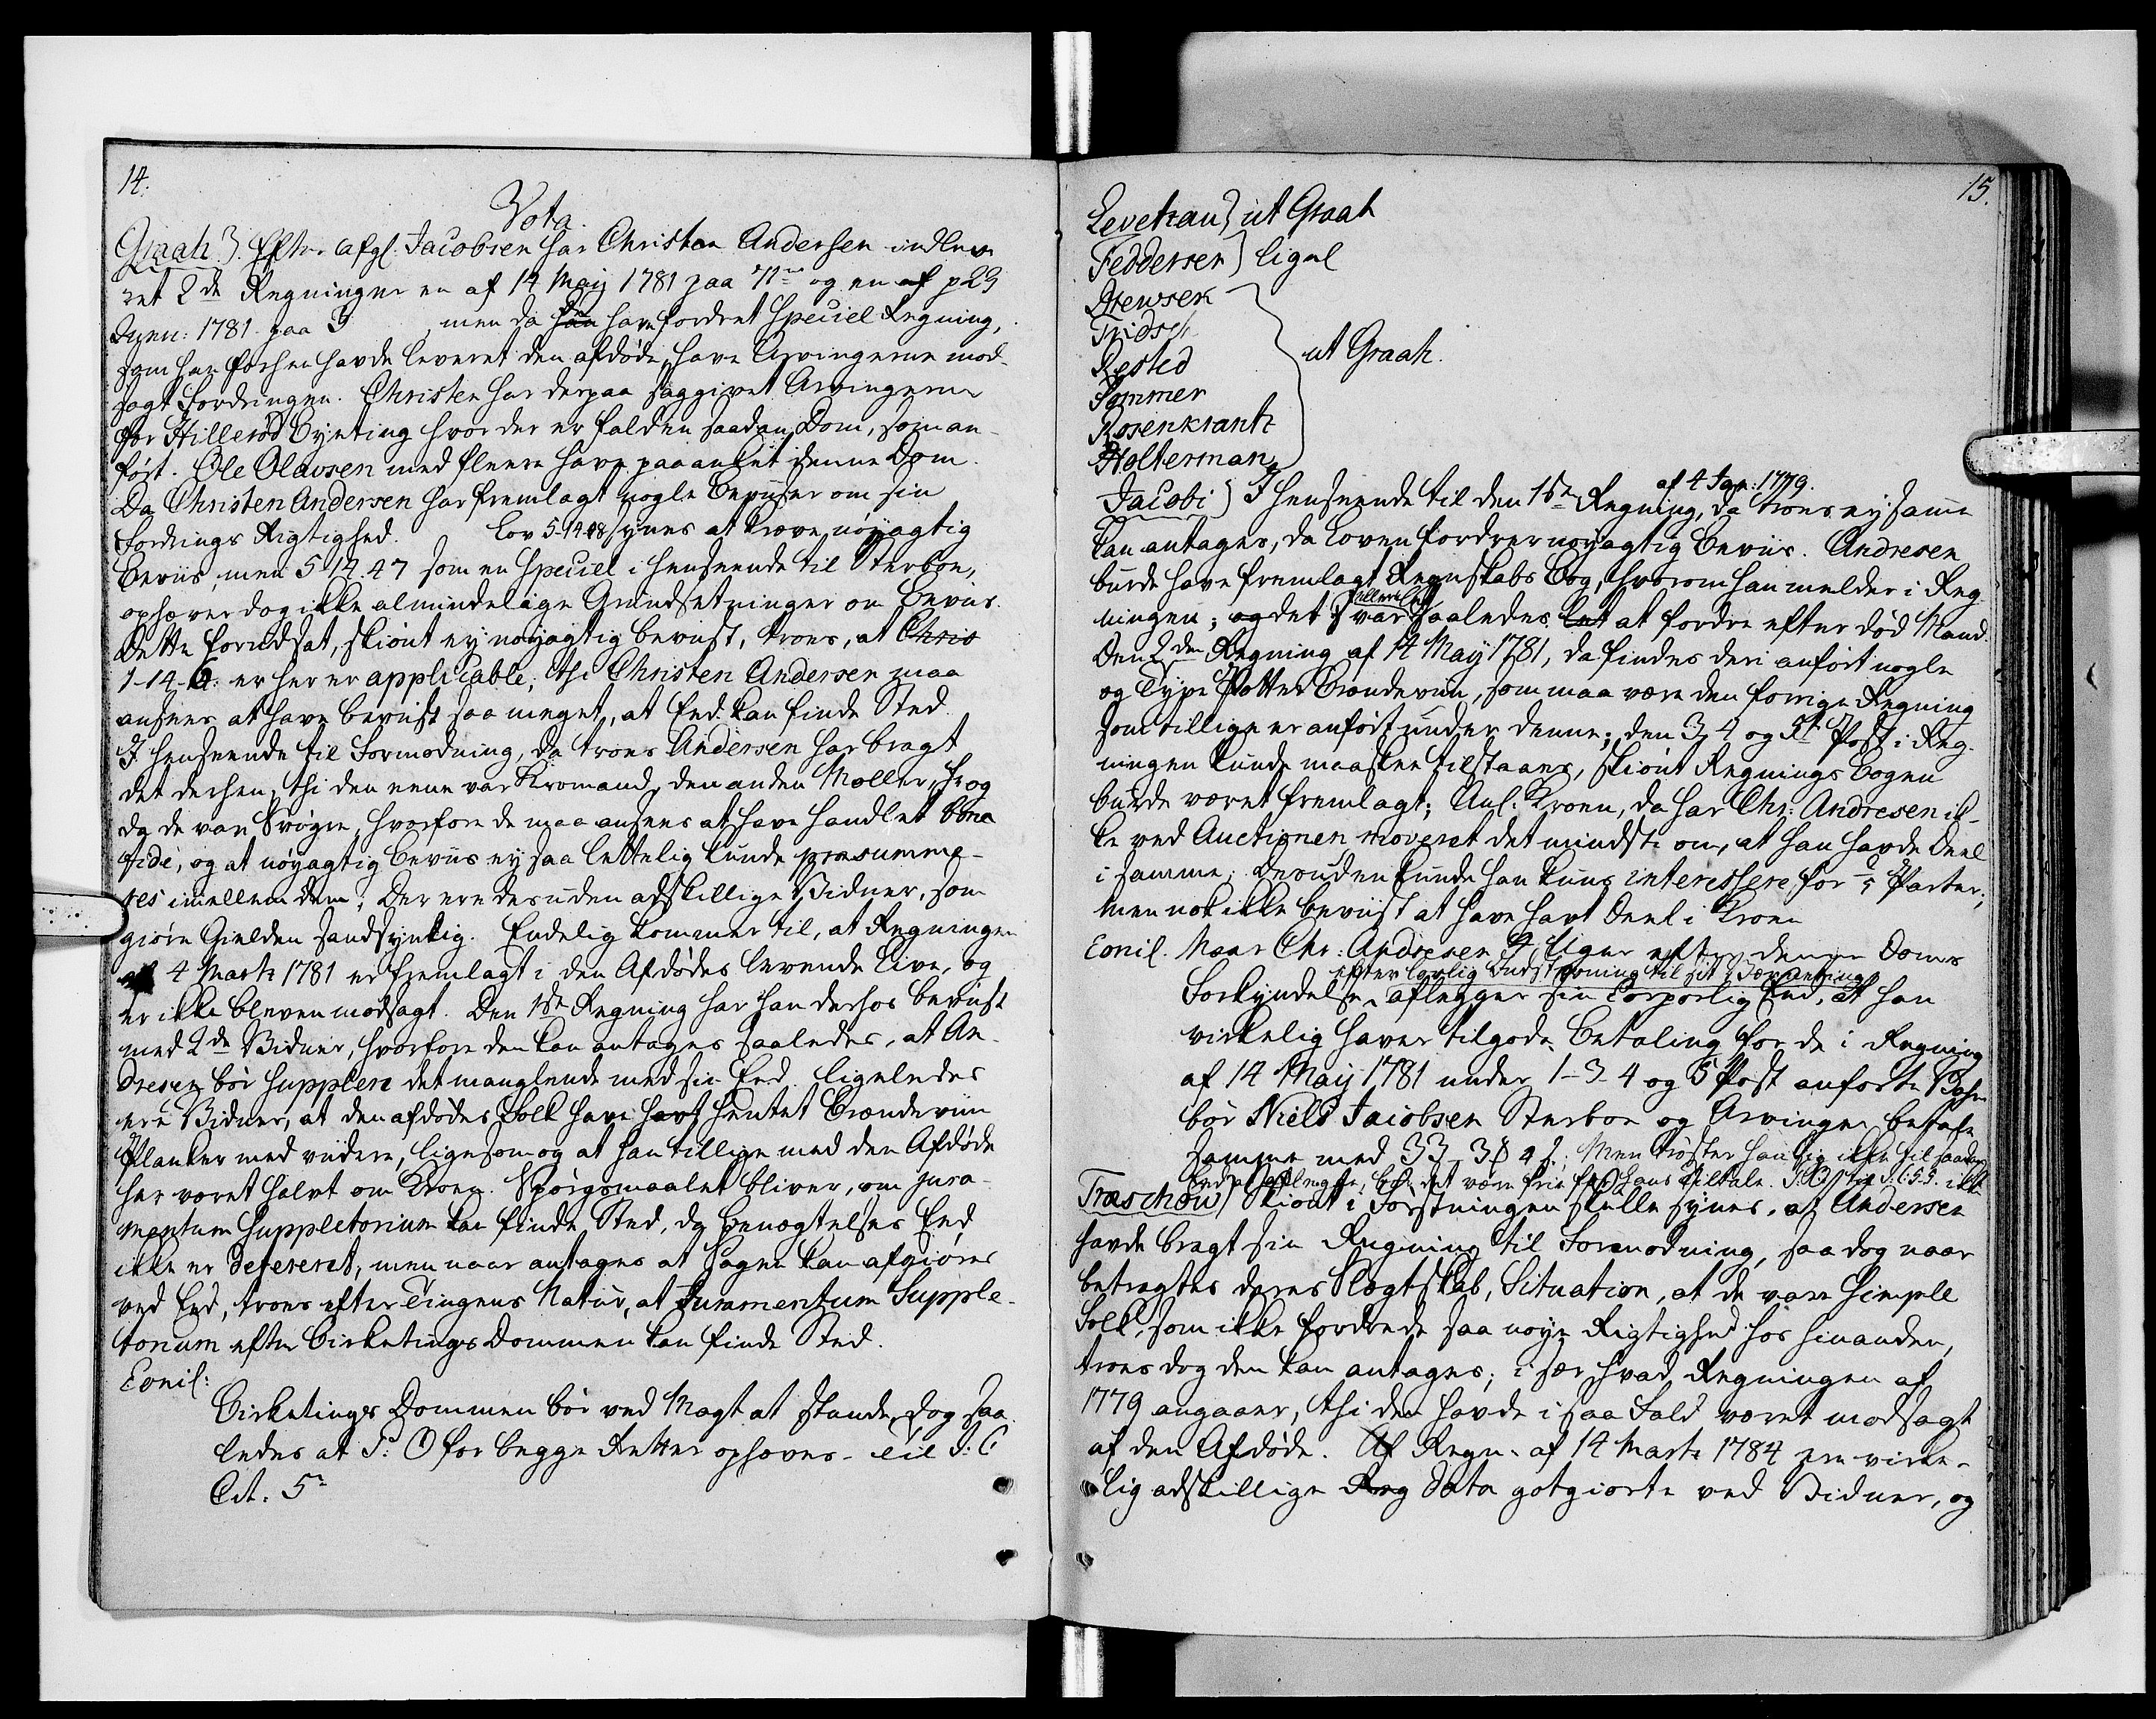 14.
Vota.
Graah). Efter afgl. Jacobsen har Christen Andersen indleve
ret 2de Regninger en af 14 Maij 1781 paa 71 og en af p 29
1781 paa men da han have fordret Speciel Regning,
som han forhen havde leveret den afdøde, have Arvingerne mod-
sagt Fordringen. Christen har derpaa saggivet Arvingerne
for Hillerød Byeting hvor der er falden saadan Dom, som an-
ført. Ole Olavsen med fleere have paaanket denne Dom.
Da Christen Andersen har fremlagt nogle Beviiser om sin
Fordrings Rigtighed. Lov 5-14-48 synes at kræve nøyagtig
Beviis, men 5-14.47 som en Speciel i Henseende til Sterboe,
ophæver dog ikke almindelige Grundsetninger om Beviis.
Dette forudsat, skiønt ey nøyagtig beviist, troes, at Chris
1-14-6. er her er applicable; thi Christen Andersen maa
ansees at have beviist saa meget, at Eed kan finde Sted.
I Henseende til Formodning, da troes Andersen har bragt
det derhen, thi den eene var Kromand, den anden Møller, og
da de vare Svogre, hvorfore de maa ansees at have handlet bona
fide, og at nøyagtig Beviis ey saa lettelig kunde præsumme-
res imellem dem; Der ere desuden adskillige Vidner, som
giøre Gielden sandsynlig. Endelig kommer til, at Regningen
af 4 Marts 1781 er fremlagt i den Afdødes levende Live, og
er ikke bleven modsagt. Den 1ste Regning har han derhos beviist
med 2de Vidner, hvorfore den kan antages saaledes, at An-
dresen bør supplere det manglende med sin Eed. ligeledes
ere Vidner, at den afdødes Folk have havt hentet Brændeviin
Planker med viidere, ligesom og at han tillige med den Afdøde
har været halvt om Kroen. Spørgsmaalet bliver, om jura-
mentum suppletorium kan finde Sted, da Benægtelses Eed
ikke er defereret, men naar antages at Sagen kan afgiøres
ved Eed, troes efter Tingens Natur, at Juramentum Supple-
torium efter Birketings Dommen kan finde Sted.
Conil:
Birketings Dommen bør ved Magt at stande, dog saa
ledes at P: O for begge Retter ophæves. Til J: C
Cit. 5
15.
Levetzau) ut Graah
Feddersen) ligel
Drewsen
Tridsch
Rested
Sommer
Rosenkrantz
Holterman
ut Graah.
af 4 Jan: 1779.
Jacobi) I Henseende til den 1ste Regning, da troes ey samme
kan antages, da Loven fordrer nøyagtig Beviis. Andresen
burde have fremlagt Regnskabs Bog, hvorom han melder i Reg
ningen; og det var saaledes let at fordre efter død Mand.
Den 2den Regning af 14 May 1781, da findes deri anført nogle
og Tyve Potter Brændeviin, som maa være den forrige Regning
som tillige er anført under denne; den 3, 4 og 5te Post i Reg-
ningen kunde maaskee tilstaaes, skiønt Regnings Bogen
burde været fremlagt; Anl. Kroen, da har Chr: Andresen ik-
ke ved Auctionen moveret det mindste om, at han havde Deel
i samme; desuden kunde han kuns interessere for Parter;
men nok ikke beviist at have havt Deel i Kroen
Conil. Naar Chr: Andresen 4 Uger efter denne Doms
efter lovlig Indstævning til sit Værneting
Forkyndelse aflegger sin Corporlig Eed, at han
virkelig haver tilgode Betaling for de i Regning
af 14 Maij 1781 under 1-3-4 og 5 Post anførte
bør Niels Jacobsen Sterboe og Arvinger betale
samme med 33 3 4 Men trøster han sig ikke til saadan
Eed at aflegge, bør det være frie for hans Tiltale.
Traschow) Skiønt i Førstningen skulle synes, at Andersen ikke
havde bragt sin Regning til Formodning, saa dog naar
betragtes deres Slegtskab, Situation, at de vare simple
Folk, som ikke fordrede saa nøye Rigtighed hos hinanden,
troes dog den kan antages; i sær hvad Regningen af
1779 angaaer, thi den havde i saa Fald været modsagt
af den Afdøde. Af Regn. af 14 Marts 1784 ere virke-
lig adskillige Reg Data gotgiorte ved Vidner, og